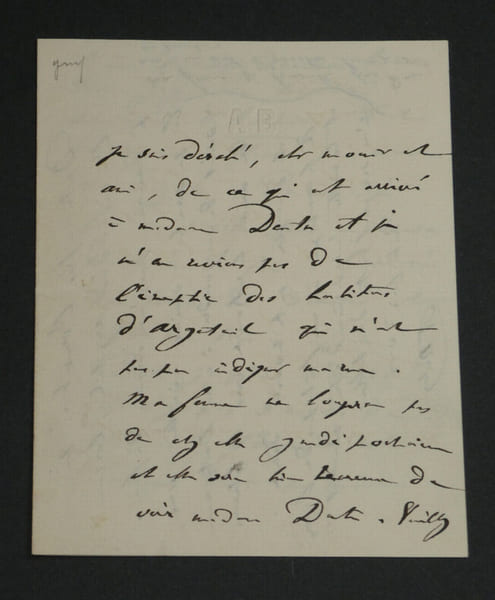 AB
Je suis désolé, cher monsieur et
ami, de ce qui est arrivé
à madame Dentu et je
n'en reviens pas de
des habitans
d'argenteuil qui m'ont
pas peu indigné
Ma femme ne bougera pas
de chez elle jeudi prochain
et elle sera bien heureuse de
voir madame Dentu. Veuillez